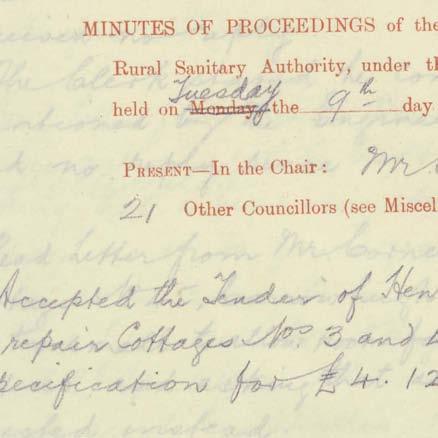 MINUTES OF PROCEEDINGS of the
Rural Sanitary Authority, under th
Tuesday
held on Monday, the 9th day
PRESENT—In the Chair: Mr
21 Other Councillors (see Miscell
Accepted the Tender of Hen
repair Cottages Nos 3 and 4
pecification for £4.12